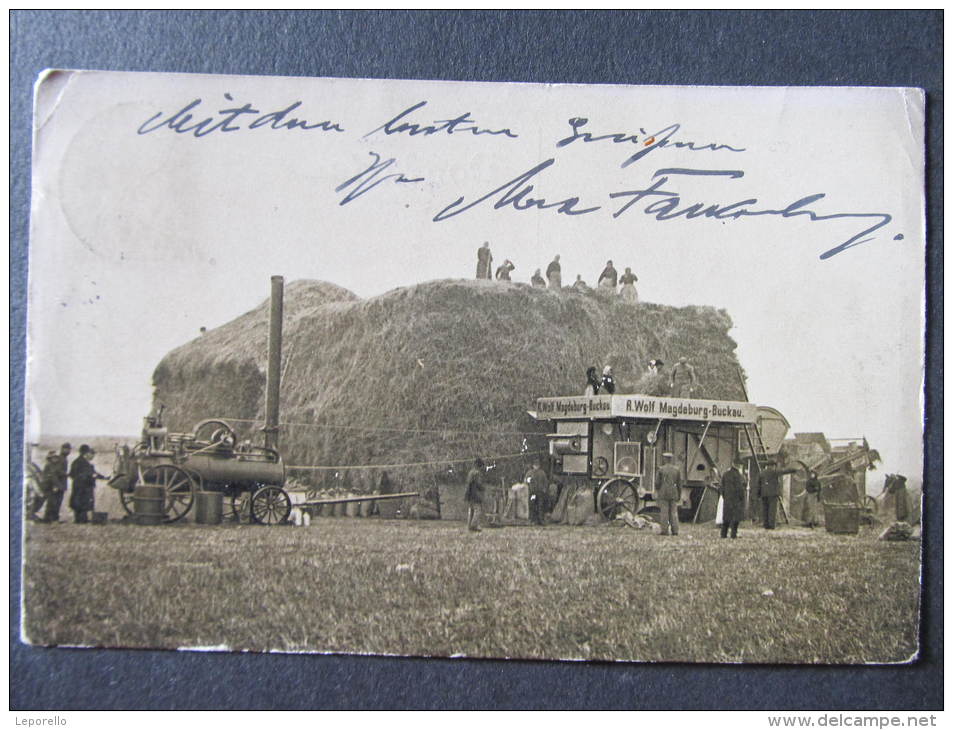 Mit den besten Grüßen
Ihr Max
R.Wolf Magdeburg-Buckau. R.Wolf Magdeburg-Buckau.
Leporello
www.delcampe.net